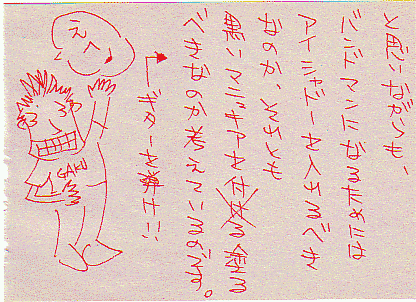 と思いながらも、
バンドマンになるためには
アイシャドーを入れるべき
なのか、それとも
黒いマニキュアを塗る
べきなのか考えているのです。
えへ